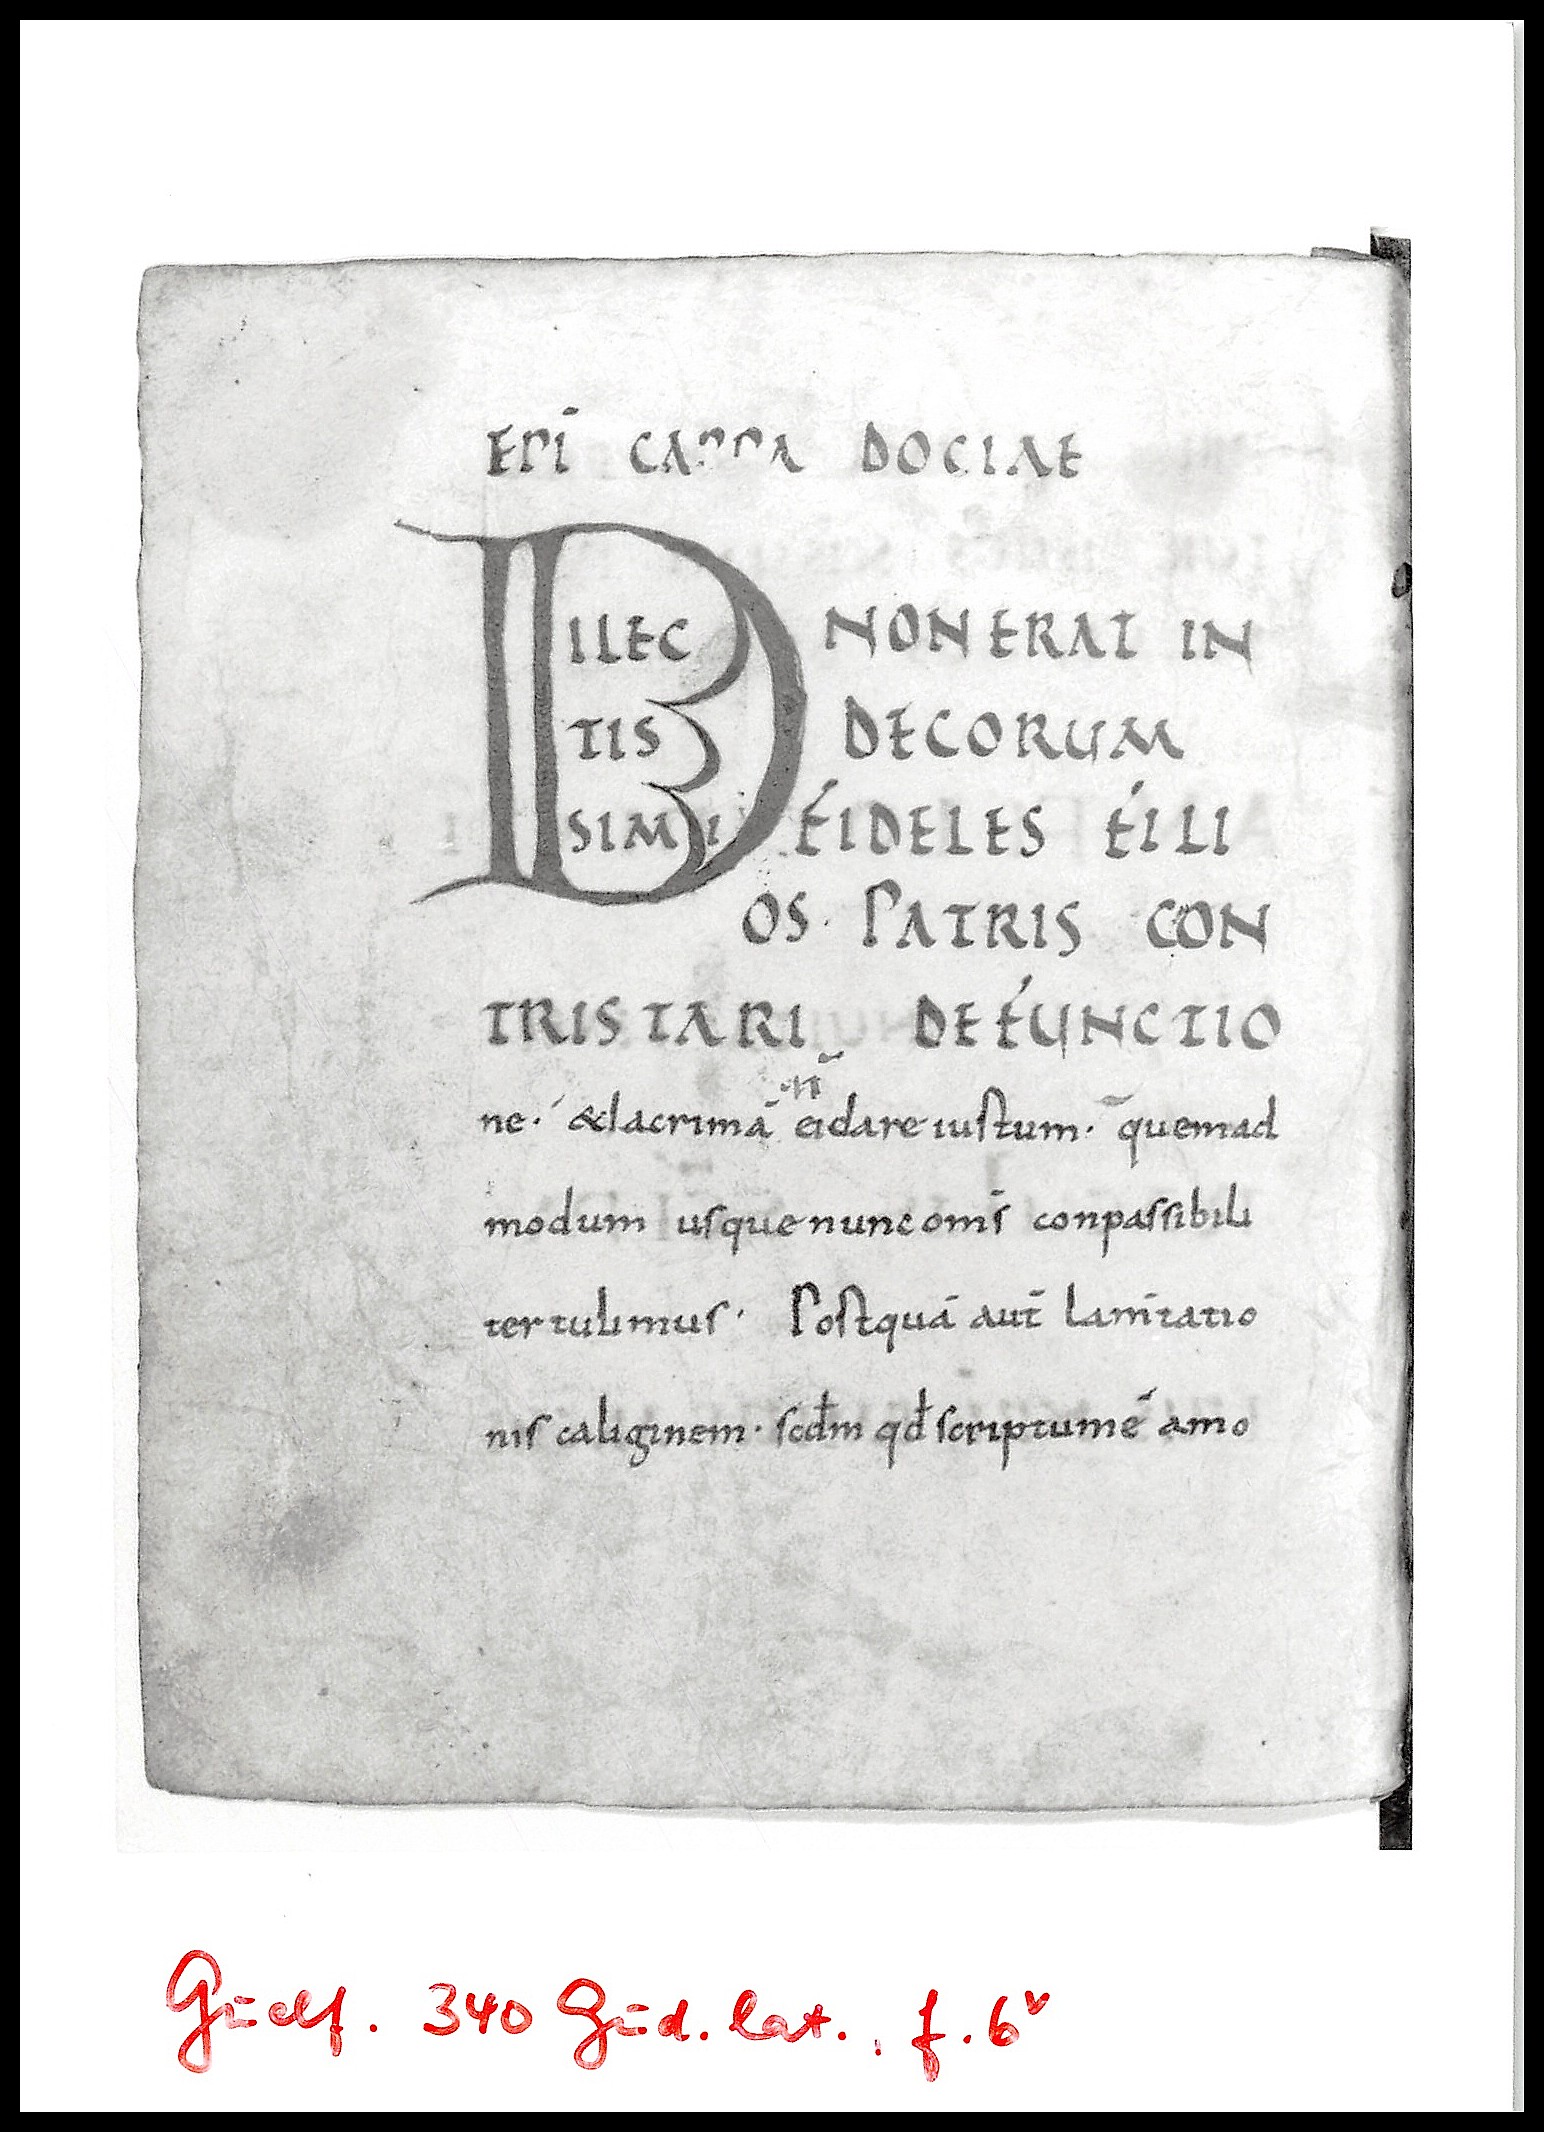 EPĪ CAPPADOCIAE
DILEC NON ERAT IN
TIS DECORUM
SIMI FIDELES FILI
OS· PATRIS CON
TRISTARI DEFUNCTIO
n̄
ne· &lacrimā eidare iustum· quemad
modum usque nunc om̄s conpassibili
ter tulimus· Postquā aut̄ lam̄tatio
nis caliginem· scđm qđ scriptum ē amo
Guelf. 340 Gud. lat., f. 6v